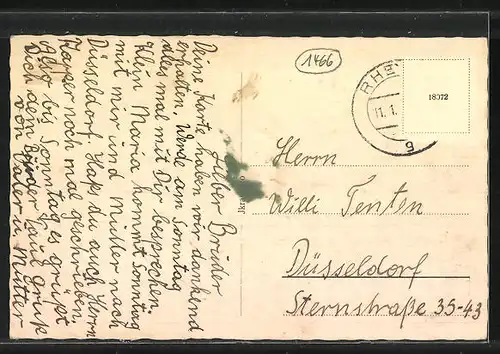 Lieber Bruder
Deine Karte haben wir dankend
erhalten. Werd, am Sonntag
alles mal mit Dir besprechen.
Klein Maria kommt sonntag
mit mir und Mutter nach
Düsseldorf. Hast du auch Herrn
Kaiser noch mal geschrieben,
also bis Sonntag es grüßt
Dich dein Bruder Paul Gruß
von Vater u Mutter
1466
RH
11.1.
g
18072
Herrn
Willi Tenten
Düsseldorf
Sternstraße 35-43